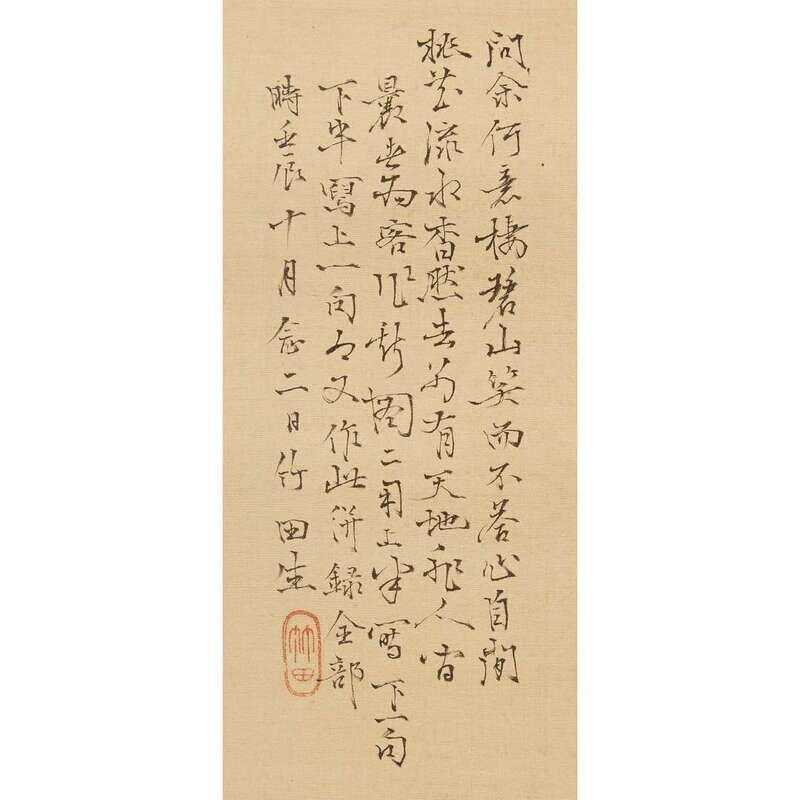 問余何意棲碧山笑而不答心自閒
桃花流水杳然去別有天地非人間
曩為客作圖二上半寫下一句
下半寫上一句又作此併録全部
時壬辰十月念二日竹田生
竹田